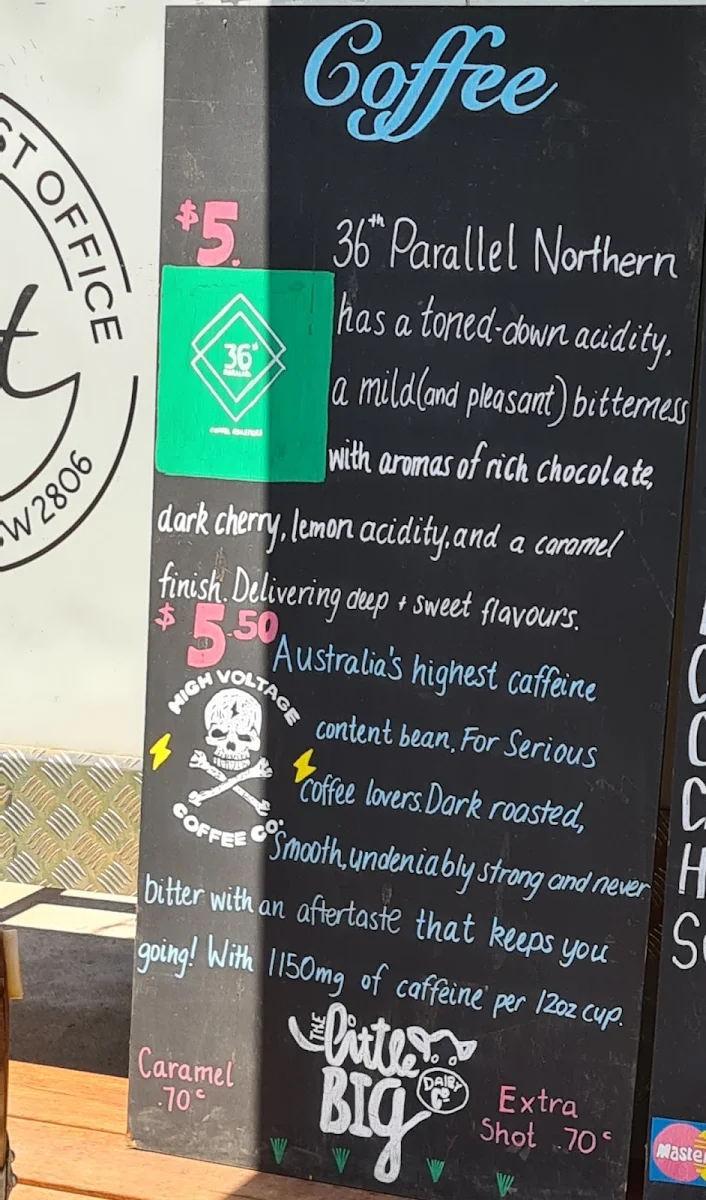 Coffee
ST OFFICE
$5.
36th Parallel Northern
has a toned-down acidity,
36th
a mild (and pleasant) bitterness
with aromas of rich chocolate,
dark cherry, lemon acidity, and a caramel
finish. Delivering deep + sweet flavours.
W 2806
$5.50
Australia's highest caffeine
HIGH VOLTAGE
content bean. For Serious
coffee lovers. Dark roasted,
COFFEE CO.
Smooth, undeniably strong and never
bitter with an aftertaste that keeps you
going! With 1150mg of caffeine per 12oz cup.
THE
little
BIG
DAIRY
Co
Caramel
.70c
Extra
Shot .70c
Master